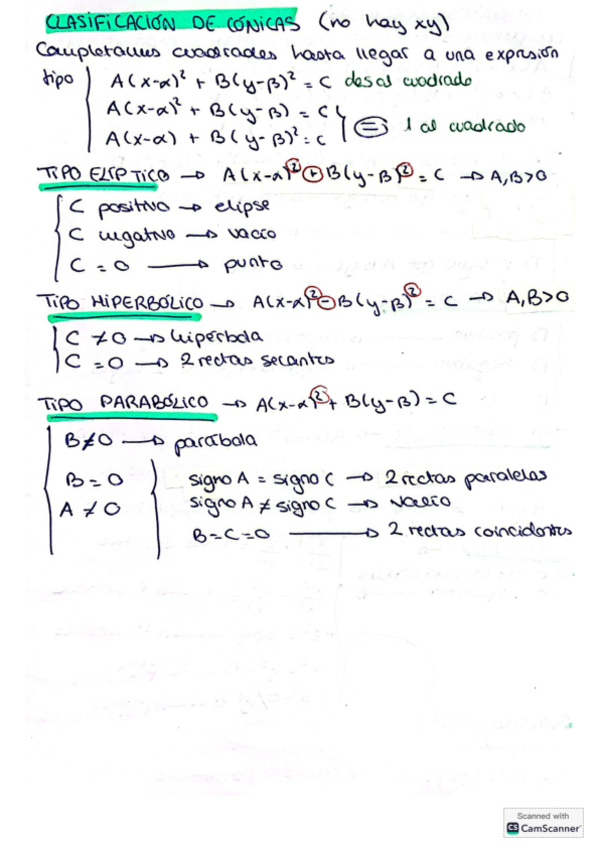 CLASIFICACIÓN DE CÓNICAS (no hay xy)
Completamos cuadrados hasta llegar a una expresión
tipo A(x-α)² + B(y-β)² = C dos al cuadrado
A(x-α)² + B(y-β) = C
A(x-α) + B(y-β)² = C 1 al cuadrado
TIPO ELÍPTICO → A(x-α)² + B(y-β)² = C → A,B>0
C positivo → elipse
C negativo → vacío
C = 0 → punto
TIPO HIPERBÓLICO → A(x-α)² - B(y-β)² = C → A,B>0
C ≠ 0 → hipérbola
C = 0 → 2 rectas secantes
TIPO PARABÓLICO → A(x-α)² + B(y-β) = C
B≠0 → parábola
B = 0 signo A = signo C → 2 rectas paralelas
A ≠ 0 signo A ≠ signo C → vacío
B=C=0 → 2 rectas coincidentes
Scanned with
CS CamScanner